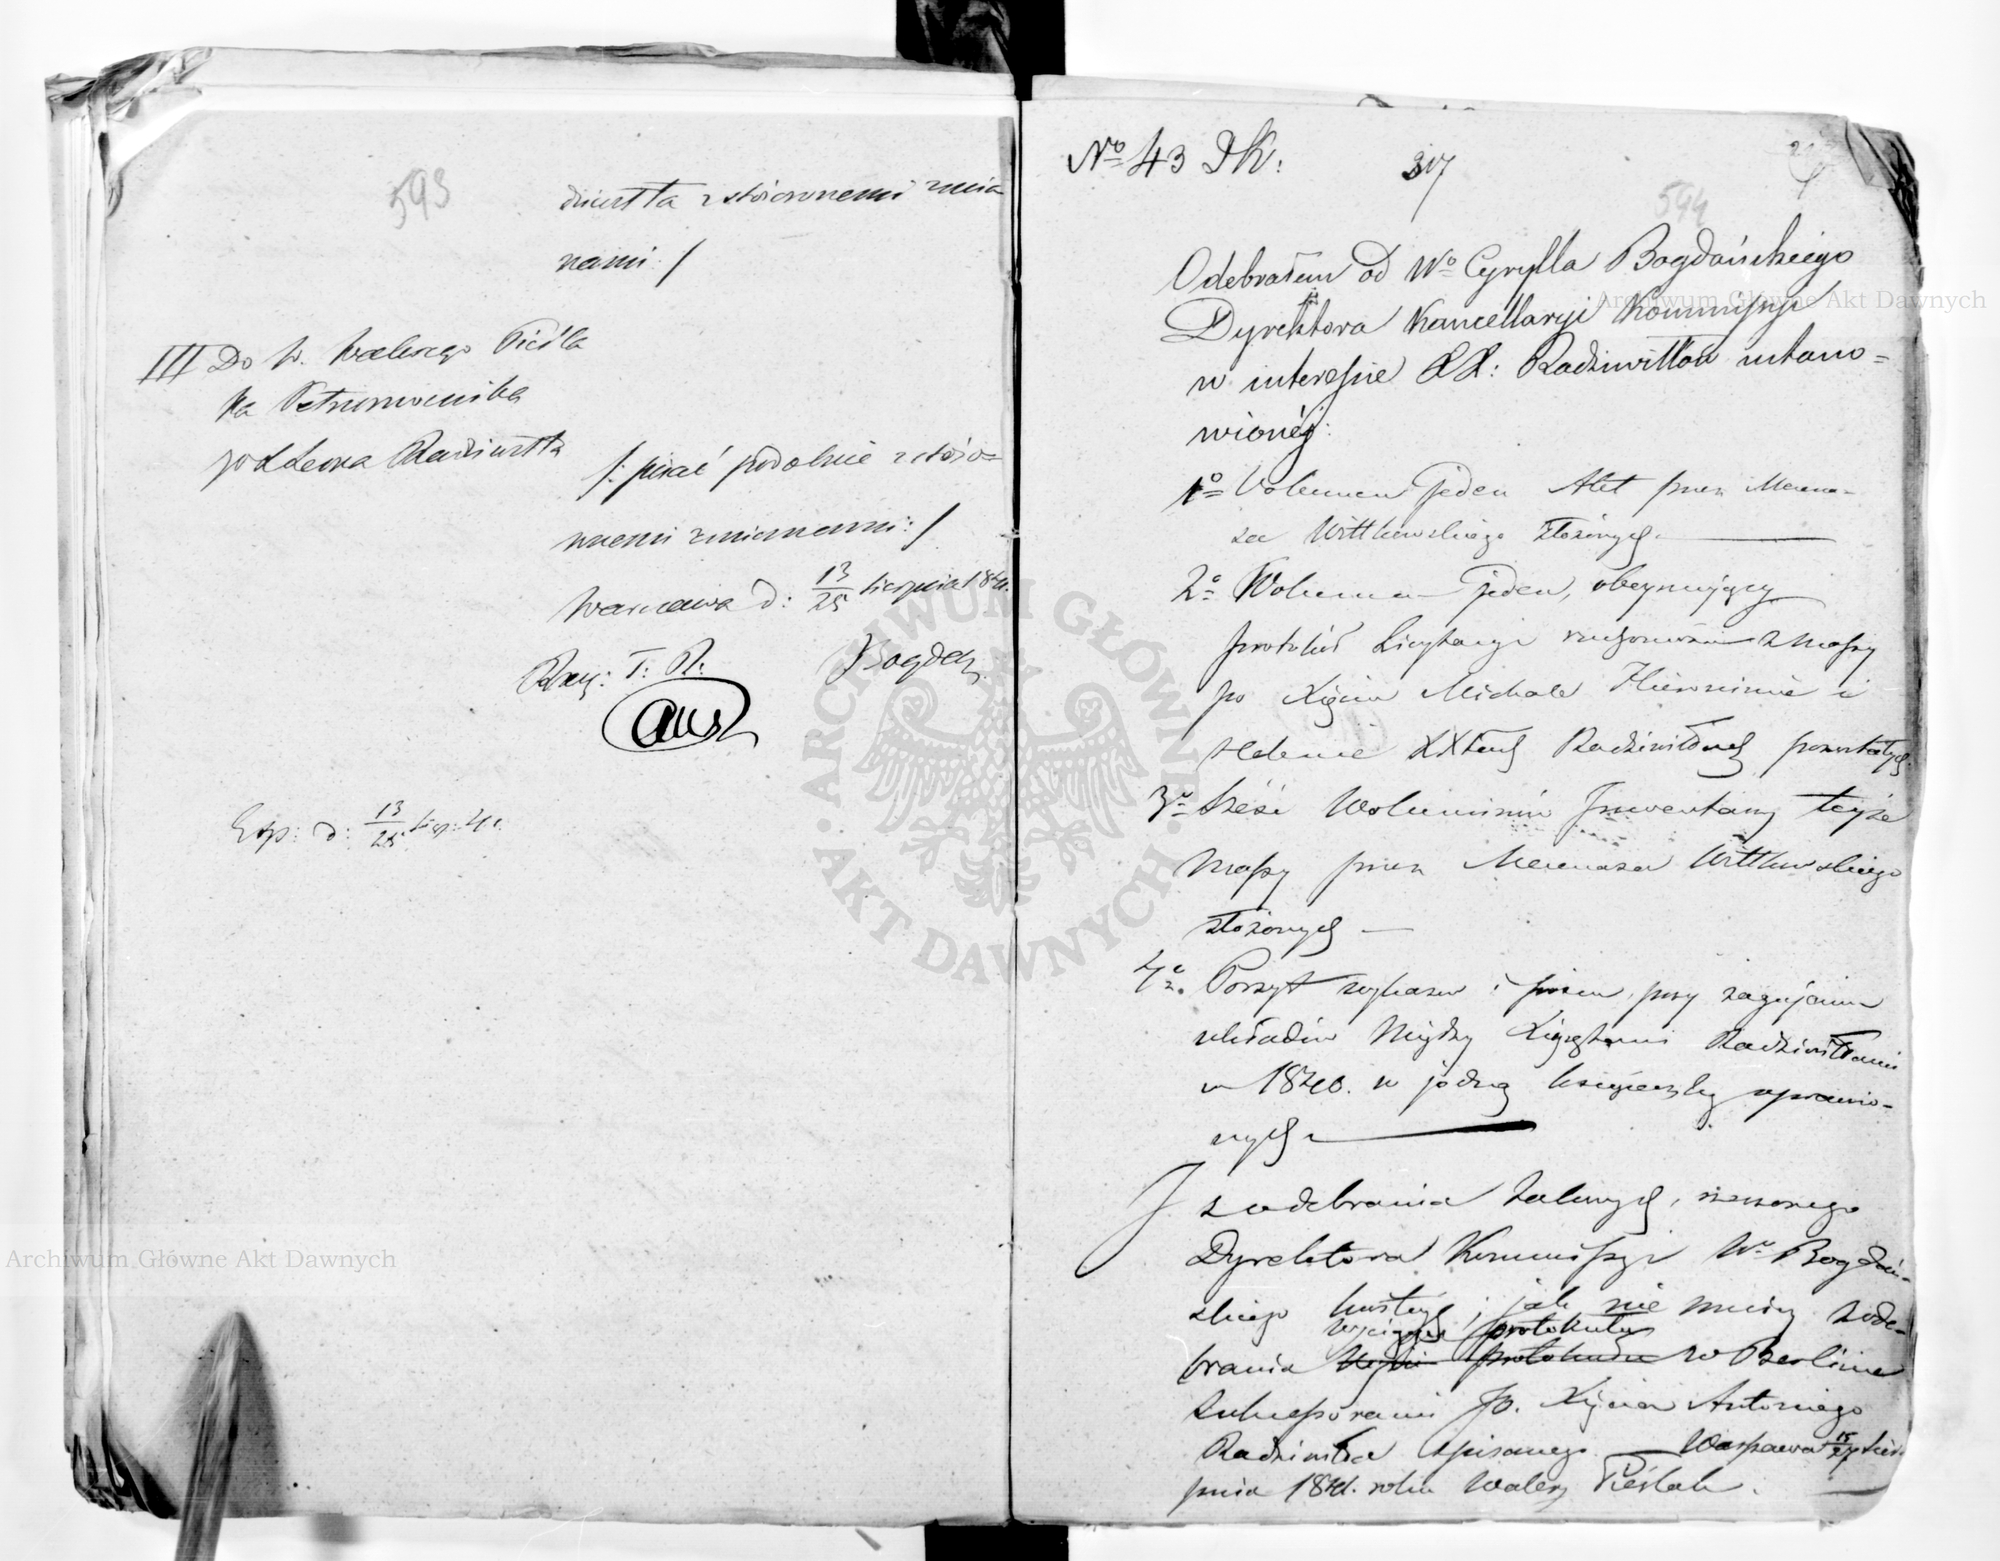 593
dziwiłła z stosownemi zmia
nami :/
III Do W. Walerego Pieśla
ka Pełnomocnika
po Leona Radziwiłła
/: pisać podobnie z stóso=
wnemi zmianami :/
Warszawa d: 13/25 Sierpnia 1841.
Bogdań.
Exp: d: 13/25 Sierp: 41.
№ 43 DK:
317
594
Odebrałem od Wo Cyrylla Bogdańskiego
Dyrektora Kancellaryi Kommissyi
w interessie XX: Radziwiłłów ustano=
wionéj:
1o Volumen jeden Akt przez Mecena-
sa Wittkowskiego złożonych.
2o Wolumen jeden, obeymujący
protokół Licytacyi ruchomości z massy
po Xięciu Michale Hieronimie i
Helenie XXtwch Radziwiłłach pozostałych
3o Sześć Woluminów Inwentarzy teyże
Massy przez Mecenasa Wittkowskiego
złożonych —
4o Poszyt wykazów i pism, przy zagajeniu
układów między Xiążętami Radziwiłłami
w 1840. w jedną książeczkę oprawio-
nych
I z odebrania takowych, rzeczonego
Dyrektora Kommissyi Wo Bogdań-
skiego kwituję; jak nie mniej z ode-
wyciągu protokułu
brania w Berlinie
Sukcessorami JO. Xięcia Antoniego
Radziwiłła spisanego — Warszawa 15/27 Sier-
pnia 1841. roku Walery Pieślak.
Archiwum Główne Akt Dawnych
Archiwum Główne Akt Dawnych
ARCHIWUM GŁÓWNE · AKT DAWNYCH ·